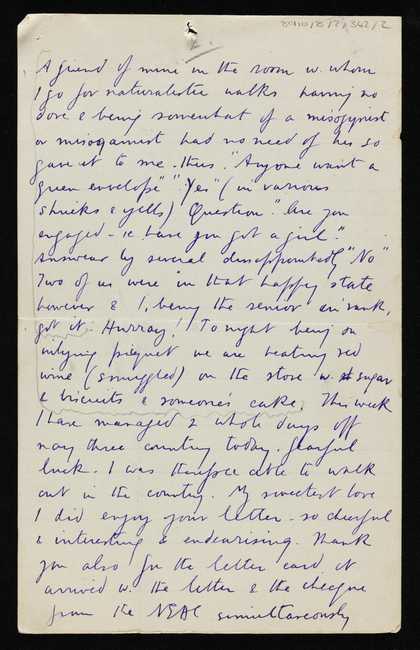 2.
A friend of mine in the room w. whom
I go for naturalistic walks having no
dove & being somewhat of a misogynist
or misogamist had no need of his so
gave it to me. thus. "Anyone want a
green envelope" "Yes" (in various
shrieks & yells) Question "Are you
engaged – ie have you got a girl".
Answear by several disappointedly "No"
Two of us were in that happy state
however & I, being the senior in rank,
got it. Hurray! Tonight being on
inlying picquet we are heating red
wine (smuggled) on the stove w. sugar
& biscuits & someone's cake. This week
I have managed 2 whole days off
nay three counting today. fearful
luck. I was therefore able to walk
out in the country. My sweetest love
I did enjoy your letter – so cheerful
& interesting & endearising. Thank
you also for the letter card. it
arrived w. the letter & the cheque
from the NEAC simultaneously